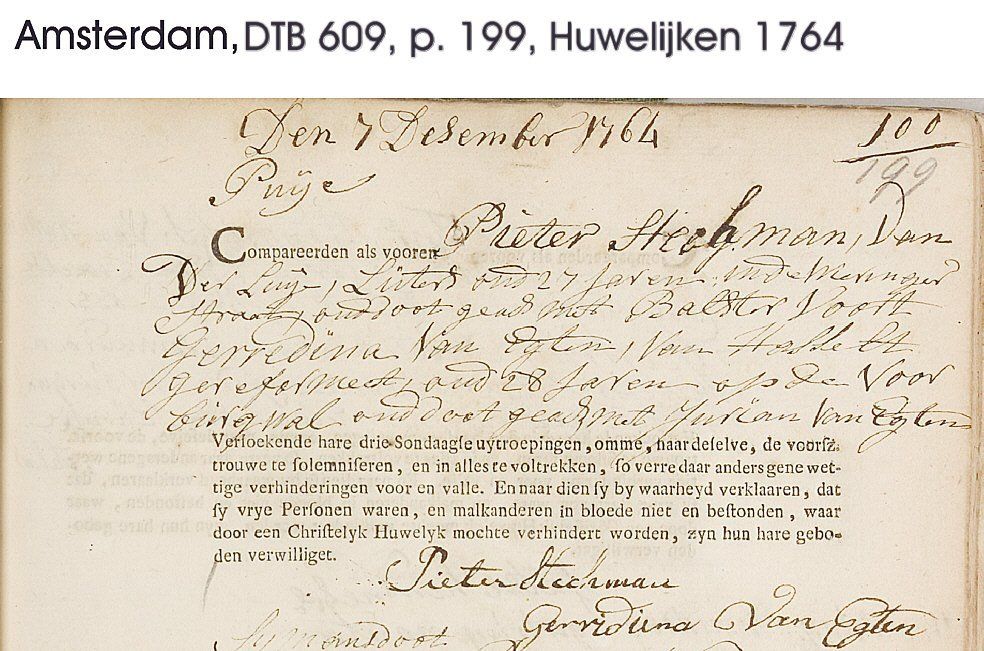 Amsterdam, DTB 609, p. 199, Huwelijken 1764
Den 7 Desember 1764
100
199
Puÿe
Compareerden als vooren Pieter Stechman, Van
Der Luÿe, Luters oud 27 Jaren, in de Weeringer
Straat, ouddoot geads met Balster Vooft
Gerredina Van Egten, Van Hasselt
gerefermeet, oud 28 Jaren op de Voor
burgwal ouddoot geads met Jurian Van Egten
Versoekende hare drie Sondaagse uytroepingen, omme, naar deselve, de voorsz.
trouwe te solemniseren, en in alles te voltrekken, so verre daar anders gene wet-
tige verhinderingen voor en valle. En naar dien sy by waarheyd verklaaren, dat
sy vrye Personen waren, en malkanderen in bloede niet en bestonden, waar
door een Christelyk Huwelyk mochte verhindert worden, zyn hun hare gebo-
den verwilliget.
Pieter Stechman
Gerridiena Van Egten